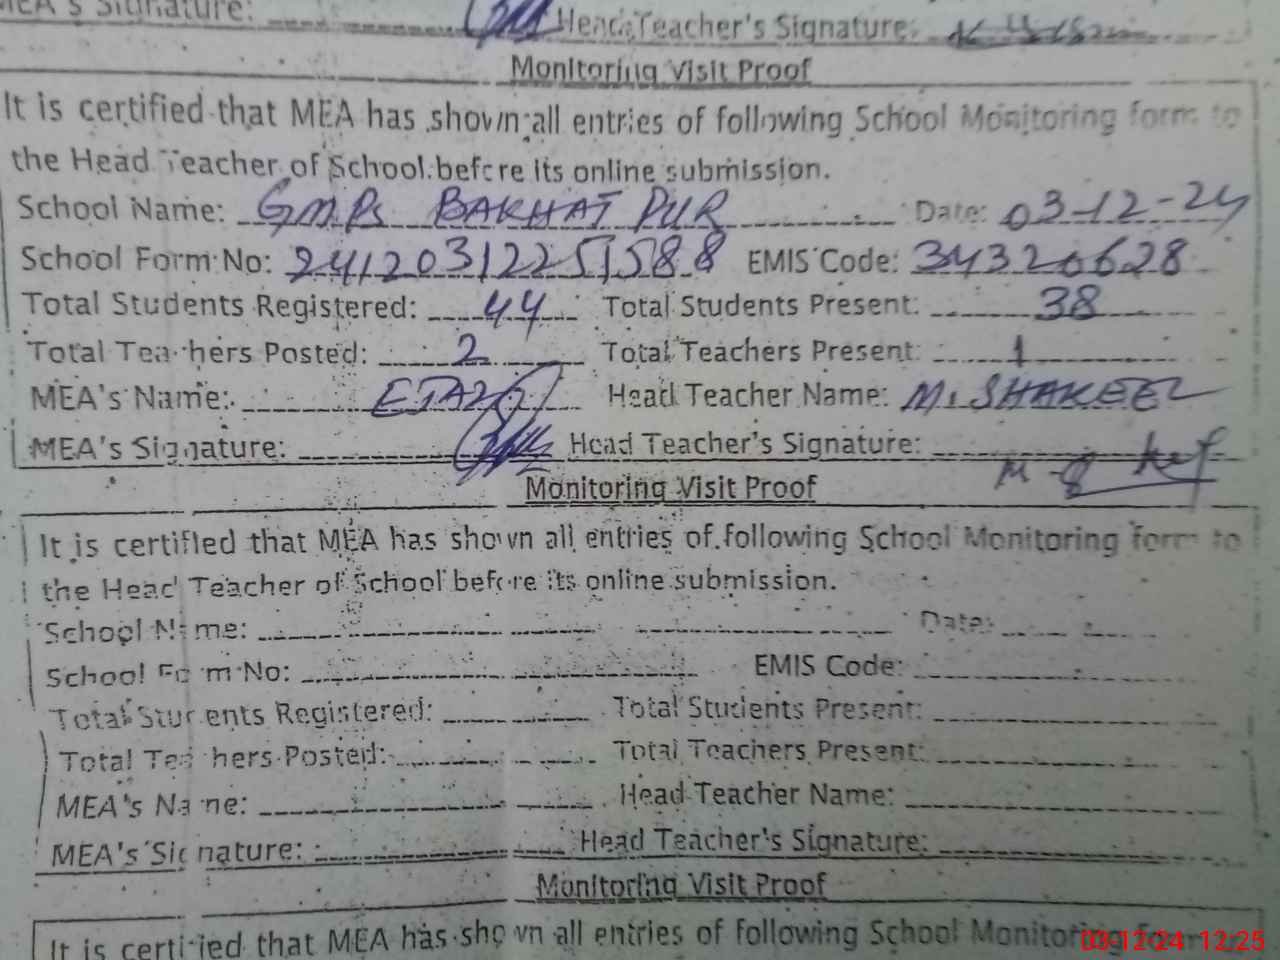 MEA's Signature: Head Teacher's Signature:
Monitoring Visit Proof
It is certified that MEA has shown all entries of following School Monitoring form to
the Head Teacher of School before its online submission.
School Name: GMPS BAKHAT PUR Date: 03-12-24
School Form No: 241203122551588 EMIS Code: 34320628
Total Students Registered: 44 Total Students Present: 38
Total Teachers Posted: 2 Total Teachers Present: 1
MEA's Name: EJAZ Head Teacher Name: M. SHAKEEL
MEA's Signature: Head Teacher's Signature:
Monitoring Visit Proof
It is certified that MEA has shown all entries of following School Monitoring form to
the Head Teacher of School before its online submission.
School Name: Date:
School Form No: EMIS Code:
Total Students Registered: Total Students Present:
Total Teachers Posted: Total Teachers Present:
MEA's Name: Head Teacher Name:
MEA's Signature: Head Teacher's Signature:
Monitoring Visit Proof
It is certified that MEA has shown all entries of following School Monitoring form to
03-12-24 12:25